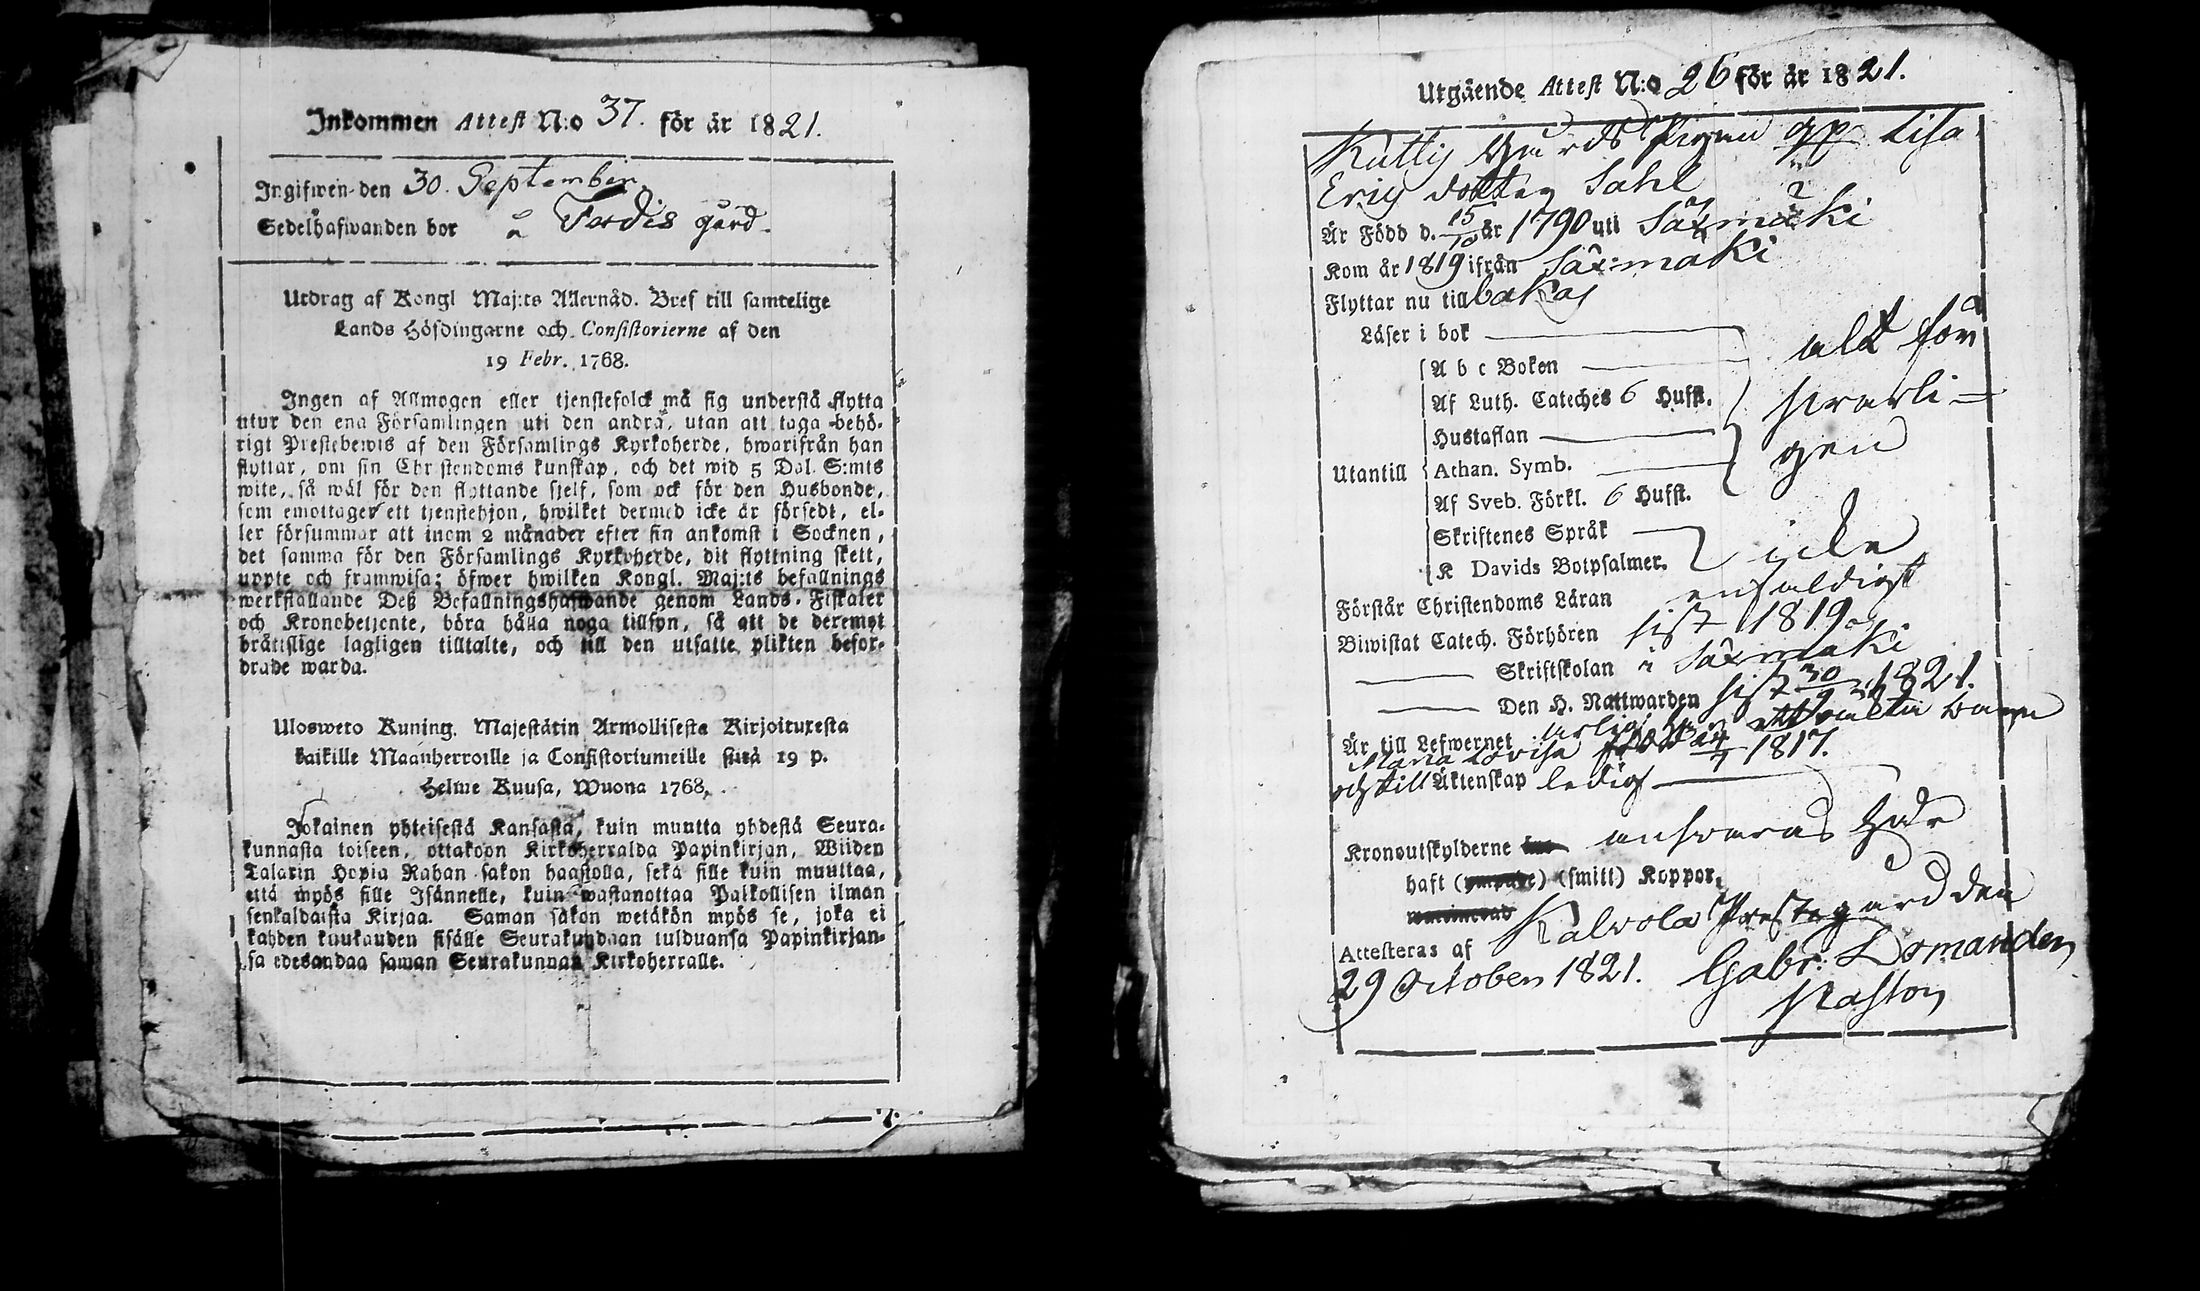 Inkommen Attest N:o 37. för år 1821.
Ingifwen den 30. September
Sedelhafwanden bor å Terdis gård.
Utdrag af Kongl Maj:ts Allernåd. Bref till samtelige
Lands Höfdingarne och Consistorierne af den
19 Febr. 1768.
Ingen af Allmogen eller tjenstefolck må sig understå flytta
utur den ena Församlingen uti den andra, utan att taga behö-
rigt Prestebewis af den Församlings Kyrkoherde, hwarifrån han
flyttar, om sin Christendoms kunskap, och det wid 5 Dal. S:mts
wite, så wäl för den flyttande sjelf, som ock för den Husbonde,
som emottager ett tjenstehjon, hwilket dermed icke är försedt, el-
ler försummar att inom 2 månader efter sin ankomst i Socknen,
det samma för den Församlings Kyrkoherde, dit flyttning skett,
uppte och framwisa; öfwer hwilken Kongl. Maj:ts befallnings
werkställande Deß Befallningshafwande genom Lands-Fiskaler
och Kronobetjente, böra hålla noga tillsyn, så att de deremot
bråttslige lagligen tilltalte, och till den utsatte plikten befor-
drade warda.
Ulosweto Kuning. Majestätin Armollisesta Kirjoituxesta
kaikille Maanherroille ja Consistoriumeille siitä 19 p.
Helme Kuusa, Wuona 1768.
Jokainen yhteisestä Kansasta, kuin muutta yhdestä Seura-
kunnasta toiseen, ottakoon Kirkoherralda Papinkirjan, Wiiden
Talarin Hopia Rahan sakon haastolla, sekä sille kuin muuttaa,
että myös sille Isännelle, kuin wastanottaa Palkollisen ilman
senkaldaista Kirjaa. Saman sakon wetäkön myös se, joka ei
kahden kuukauden sisälle Seurakundaan tulduansa Papinkirjan-
sa edesandaa sawan Seurakunnan Kirkoherralle.
7.
Utgående Attest N:o 26 för år 1821.
Kutty Gårds Pigan Lisa
Erics dotter Sahl
Är Född d. 15/10 år 1790 uti Säxmäki
Kom år 1819 ifrån Säxmäki
Flyttar nu tillbakas
Läser i bok
A b c Boken
Af Luth. Cateches 6 Hufst.
Hustaflan
Utantill Athan. Symb.
Af Sveb. Förkl. 6 Hufst.
alt för
swarli-
gen
Skriftenes Språk
K Davids Botpsalmer.
icke
Förstår Christendoms Läran enfaldigt
Biwistat Catech. Förhören sist 1819
Skriftskolan i Säxmäki
Den H. Nattwarden sist 30/9 1821.
Är till Lefwernet ärlig
Maria Lovisa 1817.
och till Äktenskap ledig
Kronoutskylderne answaras
haft (smitt) Koppor,
Kalvola Prestegård den
Attesteras af
29 October 1821. Gabr:
Pastor